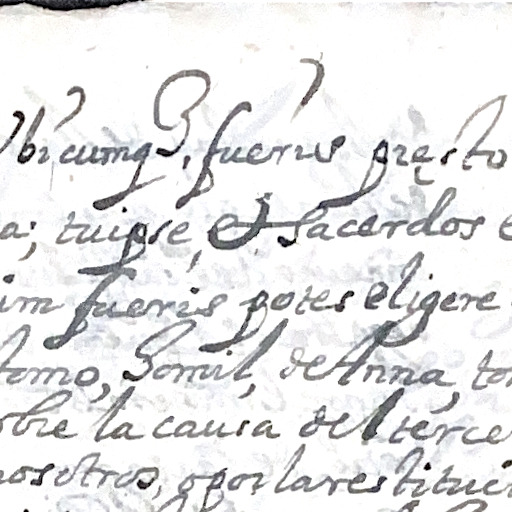 Ubicumq3. fueris pręsto
a; tuipse, et sacerdos e
im fueris potes eligere
tomo, homil, de Anna, to
obre la causa del terce
nosotros, o por la restituci